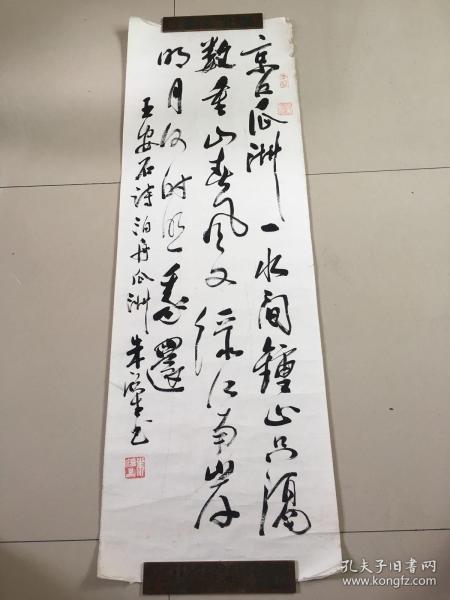 京口瓜洲一水间鍾山只隔
数重山春风又绿江南岸
明月何时照我還
王安石诗泊舟瓜洲 朱
书
孔夫子旧书网
www.kongfz.com